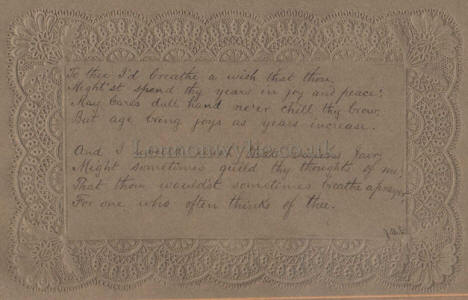 To thee I'd breathe a wish that thou,
Might'st spend thy years in joy and peace;
May Cares dull hand ne'er chill thy brow
But age bring joys as years increase.
And I
Might sometimes guild thy thoughts of me,
That thou wouldst sometimes breathe a prayer
For one who often thinks of thee.